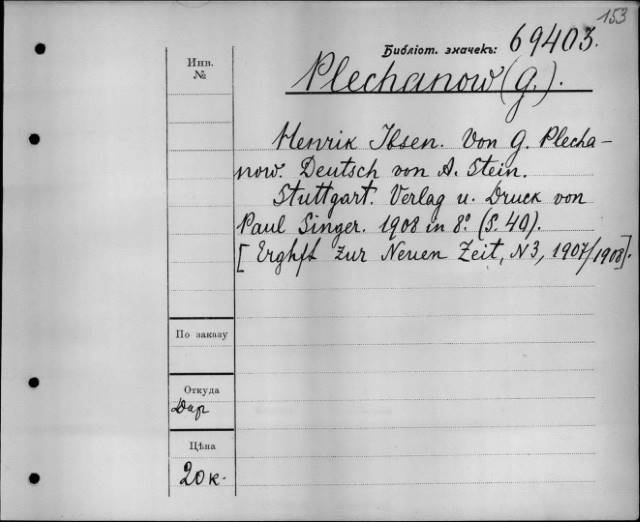 153
Библіот. значекъ: 69403.
Инв.
№
Plechanow (G.).
Henrik Ibsen. Von G. Plecha-
now. Deutsch von A. Stein.
Stuttgart. Verlag u. Druck von
Paul Singer. 1908 in 8º. (S. 40).
[Erghft zur Neuen Zeit, N3, 1907/1908].
По заказу
Откуда
Дар
Цѣна
20 к.